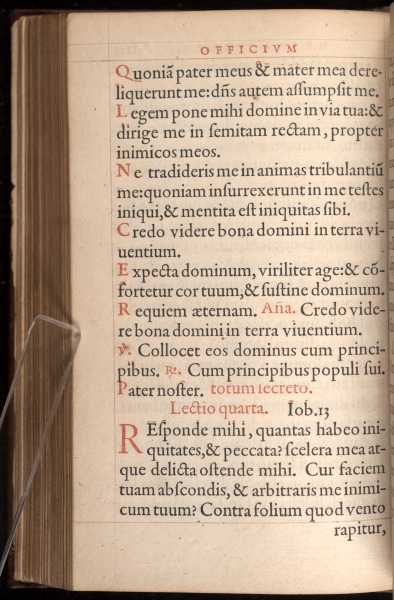 OFFICIVM
Quoniã pater meus & mater mea dere-
liquerunt me: dñs autem aſſumpſit me.
Legem pone mihi domine in via tua: &
dirige me in ſemitam rectam, propter
inimicos meos.
Ne tradideris me in animas tribulantiũ
me: quoniam inſurrexerunt in me teſtes
iniqui, & mentita eſt iniquitas ſibi.
Credo videre bona domini in terra vi-
uentium.
Expecta dominum, viriliter age: & cõ-
fortetur cor tuum, & ſuſtine dominum.
Requiem æternam. Aña. Credo vide-
re bona domini in terra viuentium.
℣. Collocet eos dominus cum princi-
pibus. ℞. Cum principibus populi ſui.
Pater noſter. totum ſecreto.
Lectio quarta. Iob.13
REſponde mihi, quantas habeo ini-
quitates, & peccata? ſcelera mea at-
que delicta oſtende mihi. Cur faciem
tuam abſcondis, & arbitraris me inimi-
cum tuum? Contra folium quod vento
rapitur,